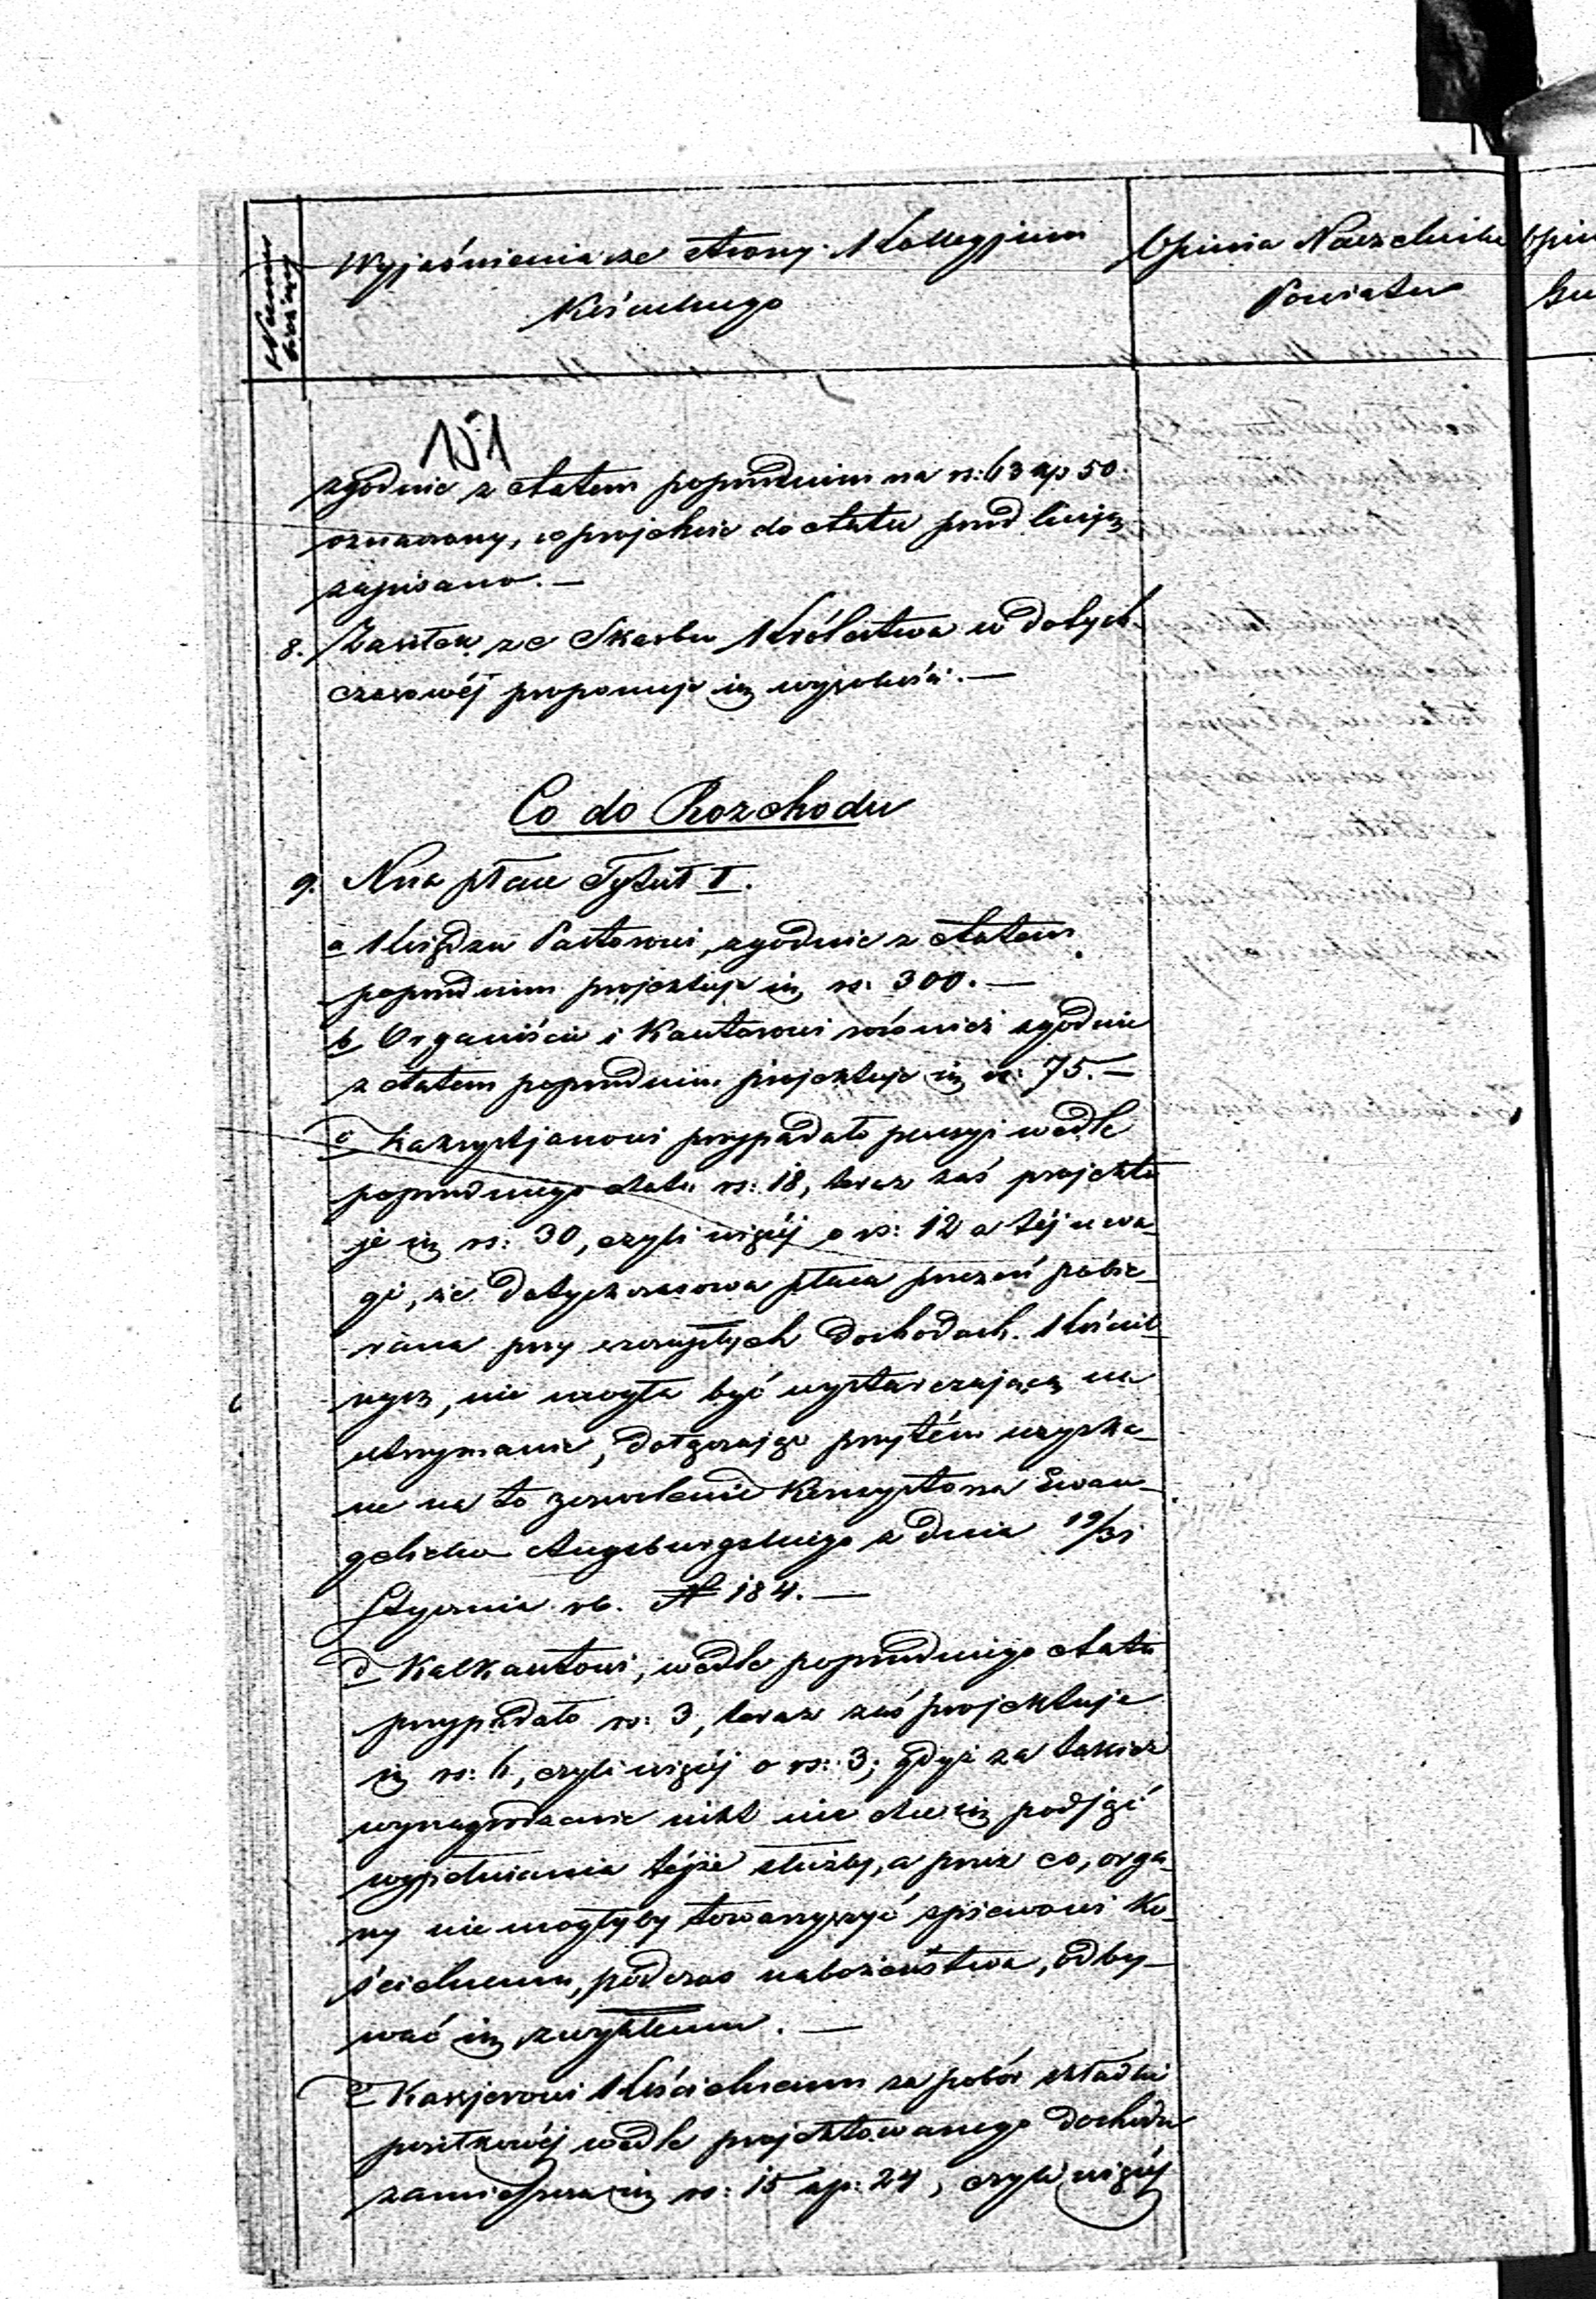 Numer bieżący
Wyjaśnienia ze strony Kollegjum
Kościelnego
Opinia Naczelnika
Powiatu
zgodnie z etatem poprzednim na rs: 63 kp 50.
oznaczony, w projekcie do etatu pod liniją
zapisano. —
8. Zasiłek ze Skarbu Królestwa w dotych-
czasowéj proponuje się wysokości. —
Co do Rozchodu
9. Na płace Tytuł I.
a Księdzu Pastorowi, zgodnie z etatem
poprzednim projektuje się rs: 300. —
b Organiście i Kantorowi również zgodnie
z etatem poprzednim projektuje się rs: 75. —
c Kazrystjanowi przypadało pensyi wedle
poprzedniego etatu rs: 18, teraz zaś projektu
je się rs: 30, czyli więcéj o rs: 12 z téj uwa-
gi, że dotychczasowa płaca przezeń pobie-
rana przy szczupłych dochodach Kościel-
nych, nie mogła być wystarczającą na
utrzymanie, dołączając przytém uzyska-
ne na to zezwolenie Konsystorza Ewan-
gelicko Augsburgskiego z dnia 19/31
Stycznia rb. N 184. —
d Kalkantowi, wedle poprzedniego etatu
przypadało rs: 3, teraz zaś projektuje
się rs: 6, czyli więcéj o rs: 3; gdyż za takież
wynagrodzenie nikt nie chce się podjąć
wypełniania téjże służby, a przez co, orga-
ny nie mogłyby towarzyszyć śpiewowi Ko-
ścielnemu, podczas nabożeństwa, odby-
wać się zwykłemu. —
e Kassjerowi Kościelnemu za pobór składki
wedle projektowanego dochodu
zamieszcza się rs: 15 kp: 24, czyli więcéj